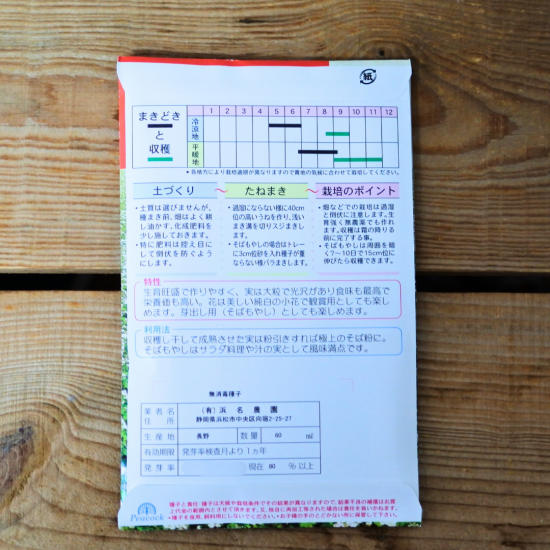 紙
まきどき
と
収穫
1 2 3 4 5 6 7 8 9 10 11 12
冷涼地
平暖地
●各地方により栽培適期が異なりますので貴地の気候に合わせて栽培してください。
土づくり 〜 たねまき 〜 栽培のポイント
・土質は選びませんが、
種まき前、畑はよく耕
し油かす、化成肥料を
少し施しておきます。
・特に肥料は控え目に
して倒伏を防ぐよう
にします。
・過湿にならない様に40cm
位の高いうねを作り、浅い
まき溝を切りスジまきし
ます。
・そばもやしの場合はトレー
に3cm位砂を入れ種子が重
ならない様バラまきします。
・畑などでの栽培は過湿
と倒伏に注意します。生
育強く無農薬でも作れ
ます。収穫は霜の降りる
前に完了する事。
・そばもやしは周囲を暗
く7〜10日で15cm位に
伸びたら収穫できます。
特性
生育旺盛で作りやすく、実は大粒で光沢があり食味も最高で
栄養価も高い。花は美しい純白の小花で観賞用としても楽し
めます。芽出し用（そばもやし）としても楽しめます。
利用法
収穫し干して成熟させた実は粉引きすれば極上のそば粉に。
そばもやしはサラダ料理や汁の実として風味満点です。
無消毒種子
業者名 （有）浜名農園
住所 静岡県浜松市中央区向宿2-25-27
生産地 長野 数量 60 ml
有効期限 発芽率検査月より1ヵ年
発芽率 現在 80 %以上
Peacock
種子と責任：種子は天候や栽培条件でその結果が異なりますので、結果不良の補償はお買
上代金の範囲内とさせて頂きます。又、独自に再加工等された場合は責任を負いかねます。
●種子を食用、飼料用にしないでください。●お子様の手のとどかない所に保管して下さい。